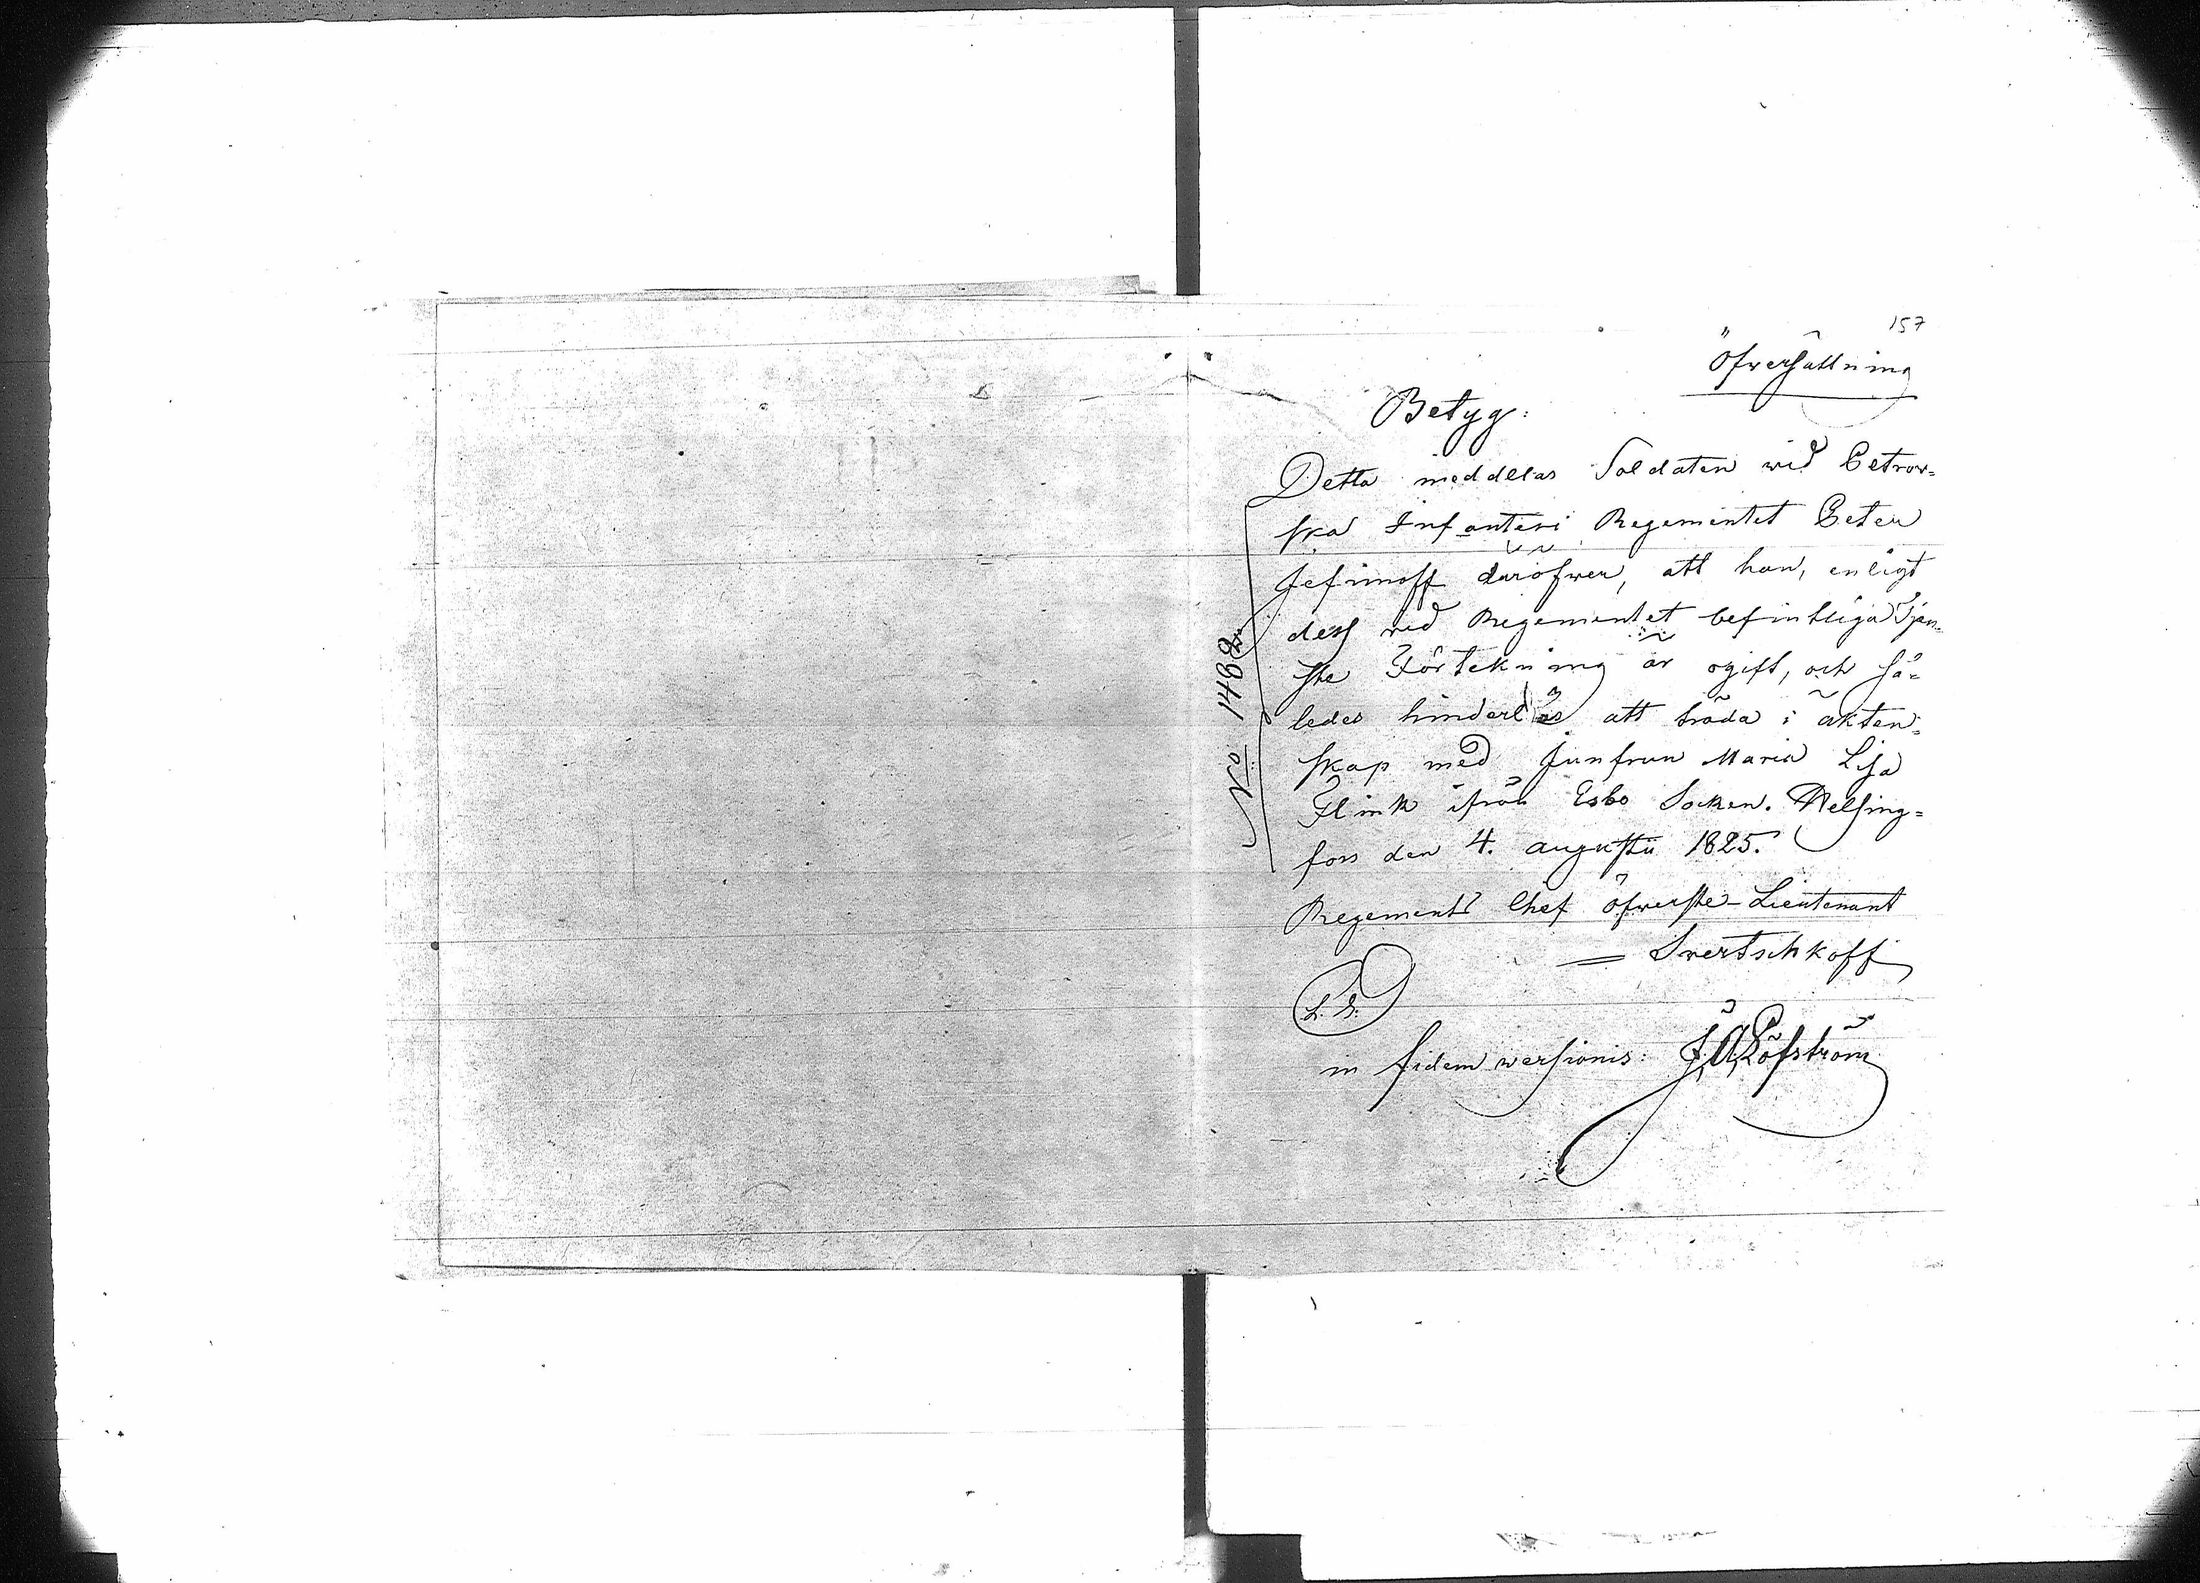 157
Öfwersättning
Betyg:
Detta meddelas Soldaten wid Petrow=
ska Infanteri Regementet Peter
Jefimoff däröfwer, att han, enligt
dess wid Regementet befintliga Tjen=
ste Förtekning är ogift, och så=
ledes hinderlös att träda i äkten=
skap med Junfrun Maria Lisa
Flink ifrån Esbo Socken. Helsing=
fors den 4. augustii 1825.
No 1482
Regements Chef Öfwerste-Lieutenant
= Swertschkoff
L. S.
in fidem wersionis: J. A. Löfström